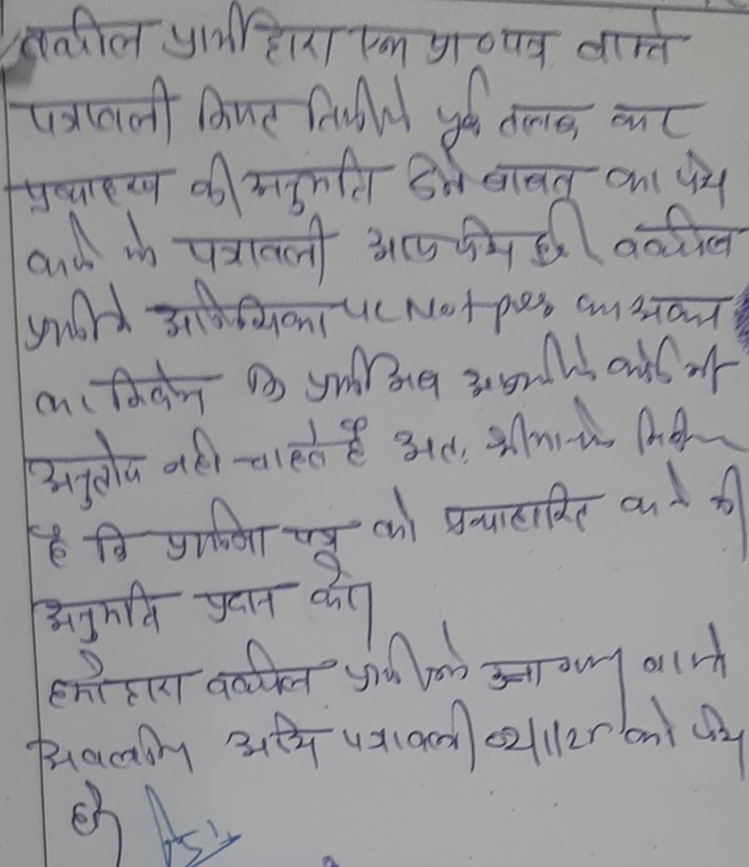 वकील प्रार्थी द्वारा एक प्रा०पत्र वास्ते
पत्रावली नियत तिथी से पूर्व तलब कर
प्रत्याहरण की अनुमति देने बाबत् का पेश
करने से पत्रावली आज पेश हुई। वकील
प्रार्थी ने Not press का
कर निवेदन कि प्रार्थी अब अप्रार्थी से कोई भी
अनुतोष नही चाहते है अतः श्रीमान से निवेदन
है कि प्रार्थना पत्र को प्रत्याहारित करने की
अनुमति प्रदान करे।
हमारे द्वारा वकील प्रार्थी को सुना गया वास्ते
अवलोकन पत्रावली को पेश
हो